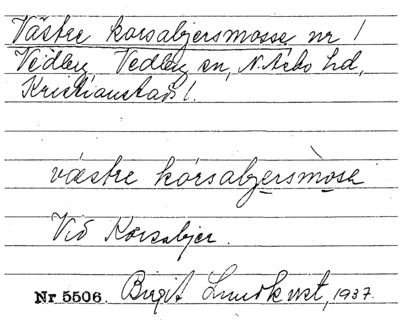 Västre korsabjersmosse nr 1
Vedby, Vedby sn, N. Åsbo hd,
Kristianstads l.
västre kórsabjersmòsa
Vid Korsabjer.
Nr 5506. Birgit Lundkvist, 1937.